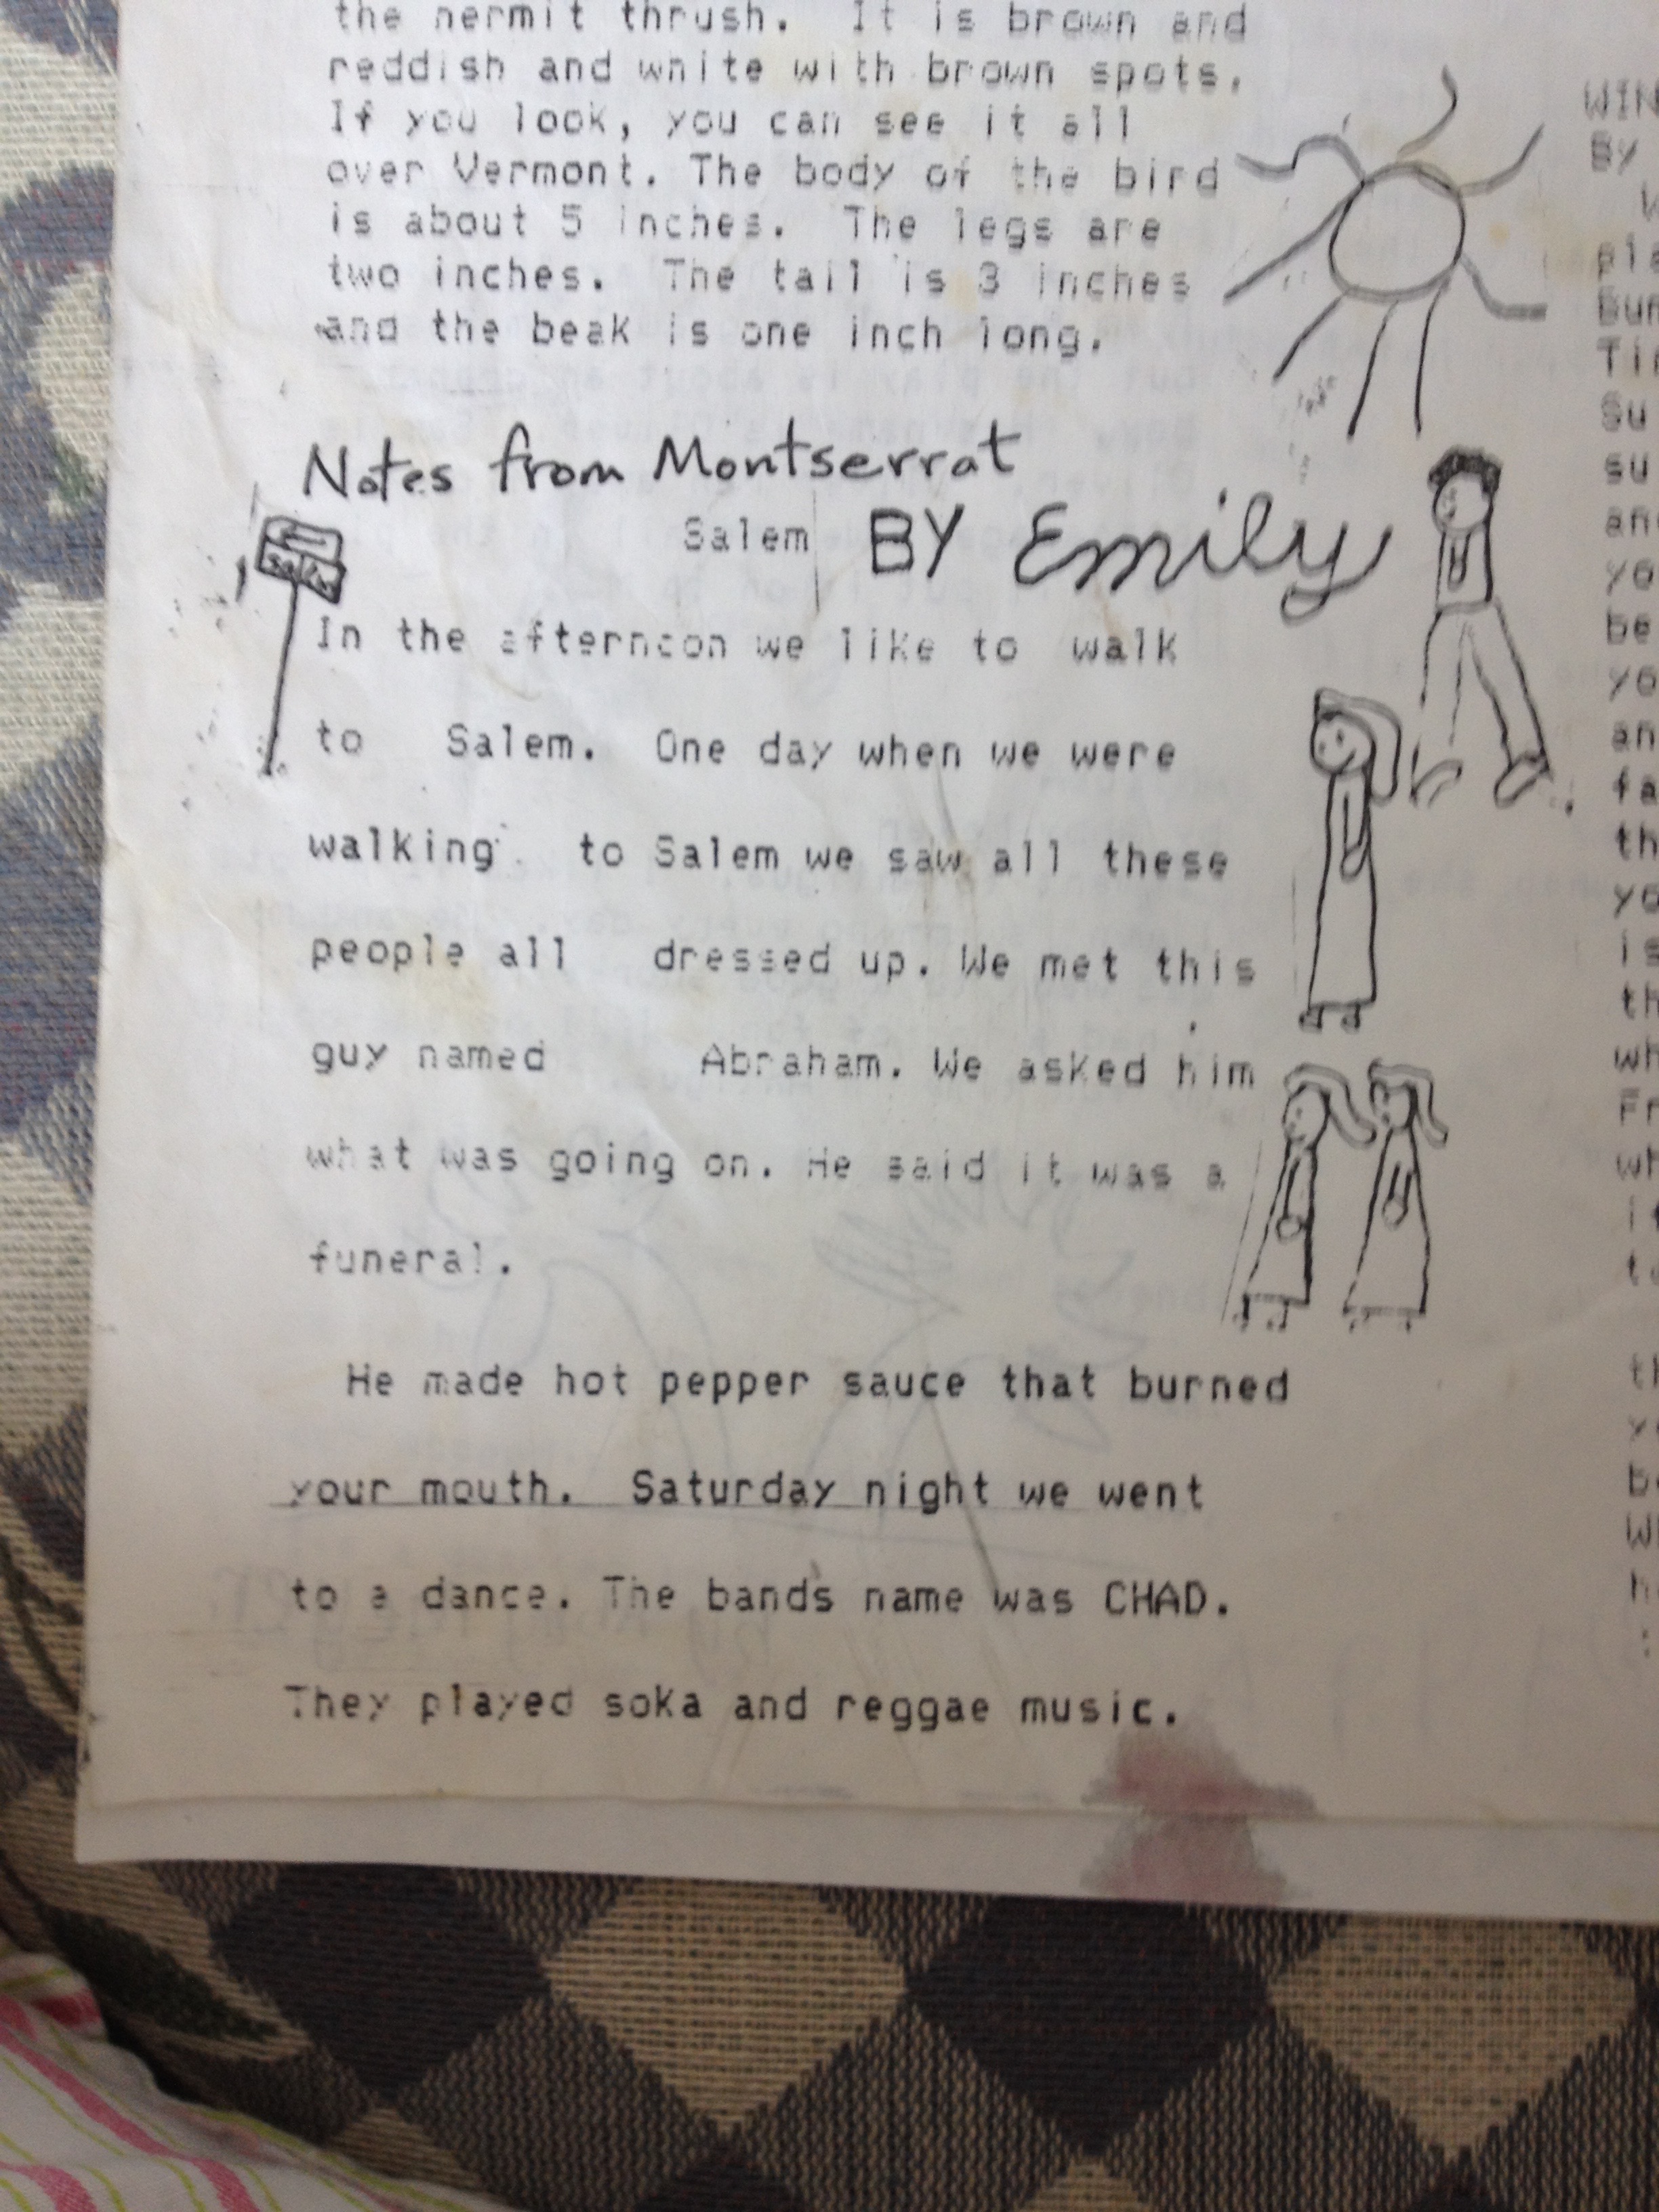 the hermit thrush. It is brown and
reddish and white with brown spots.
If you look, you can see it all
over Vermont. The body of the bird
is about 5 inches. The legs are
two inches. The tail is 3 inches
and the beak is one inch long.
Notes from Montserrat
Salem BY Emily
In the afternoon we like to walk
to Salem. One day when we were
walking to Salem we saw all these
people all dressed up. We met this
guy named Abraham. We asked him
what was going on. He said it was a
funeral.
He made hot pepper sauce that burned
your mouth. Saturday night we went
to a dance. The bands name was CHAD.
They played soka and reggae music.
WIN
By
W
pla
Bun
Tir
Su
su
and
yo
be
yo
an
fa
th
yo
is
th
wh
Fr
wh
th
y
Wh